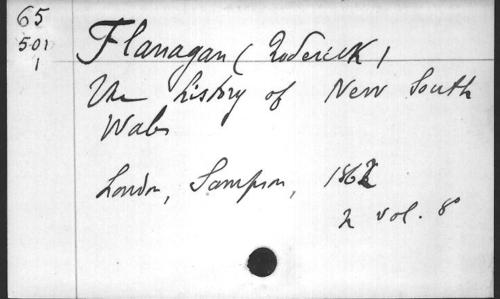 65
501
1
Flanagan (Roderick)
The history of New South
Wales
London, Sampson, 1862
2 vol. 8°